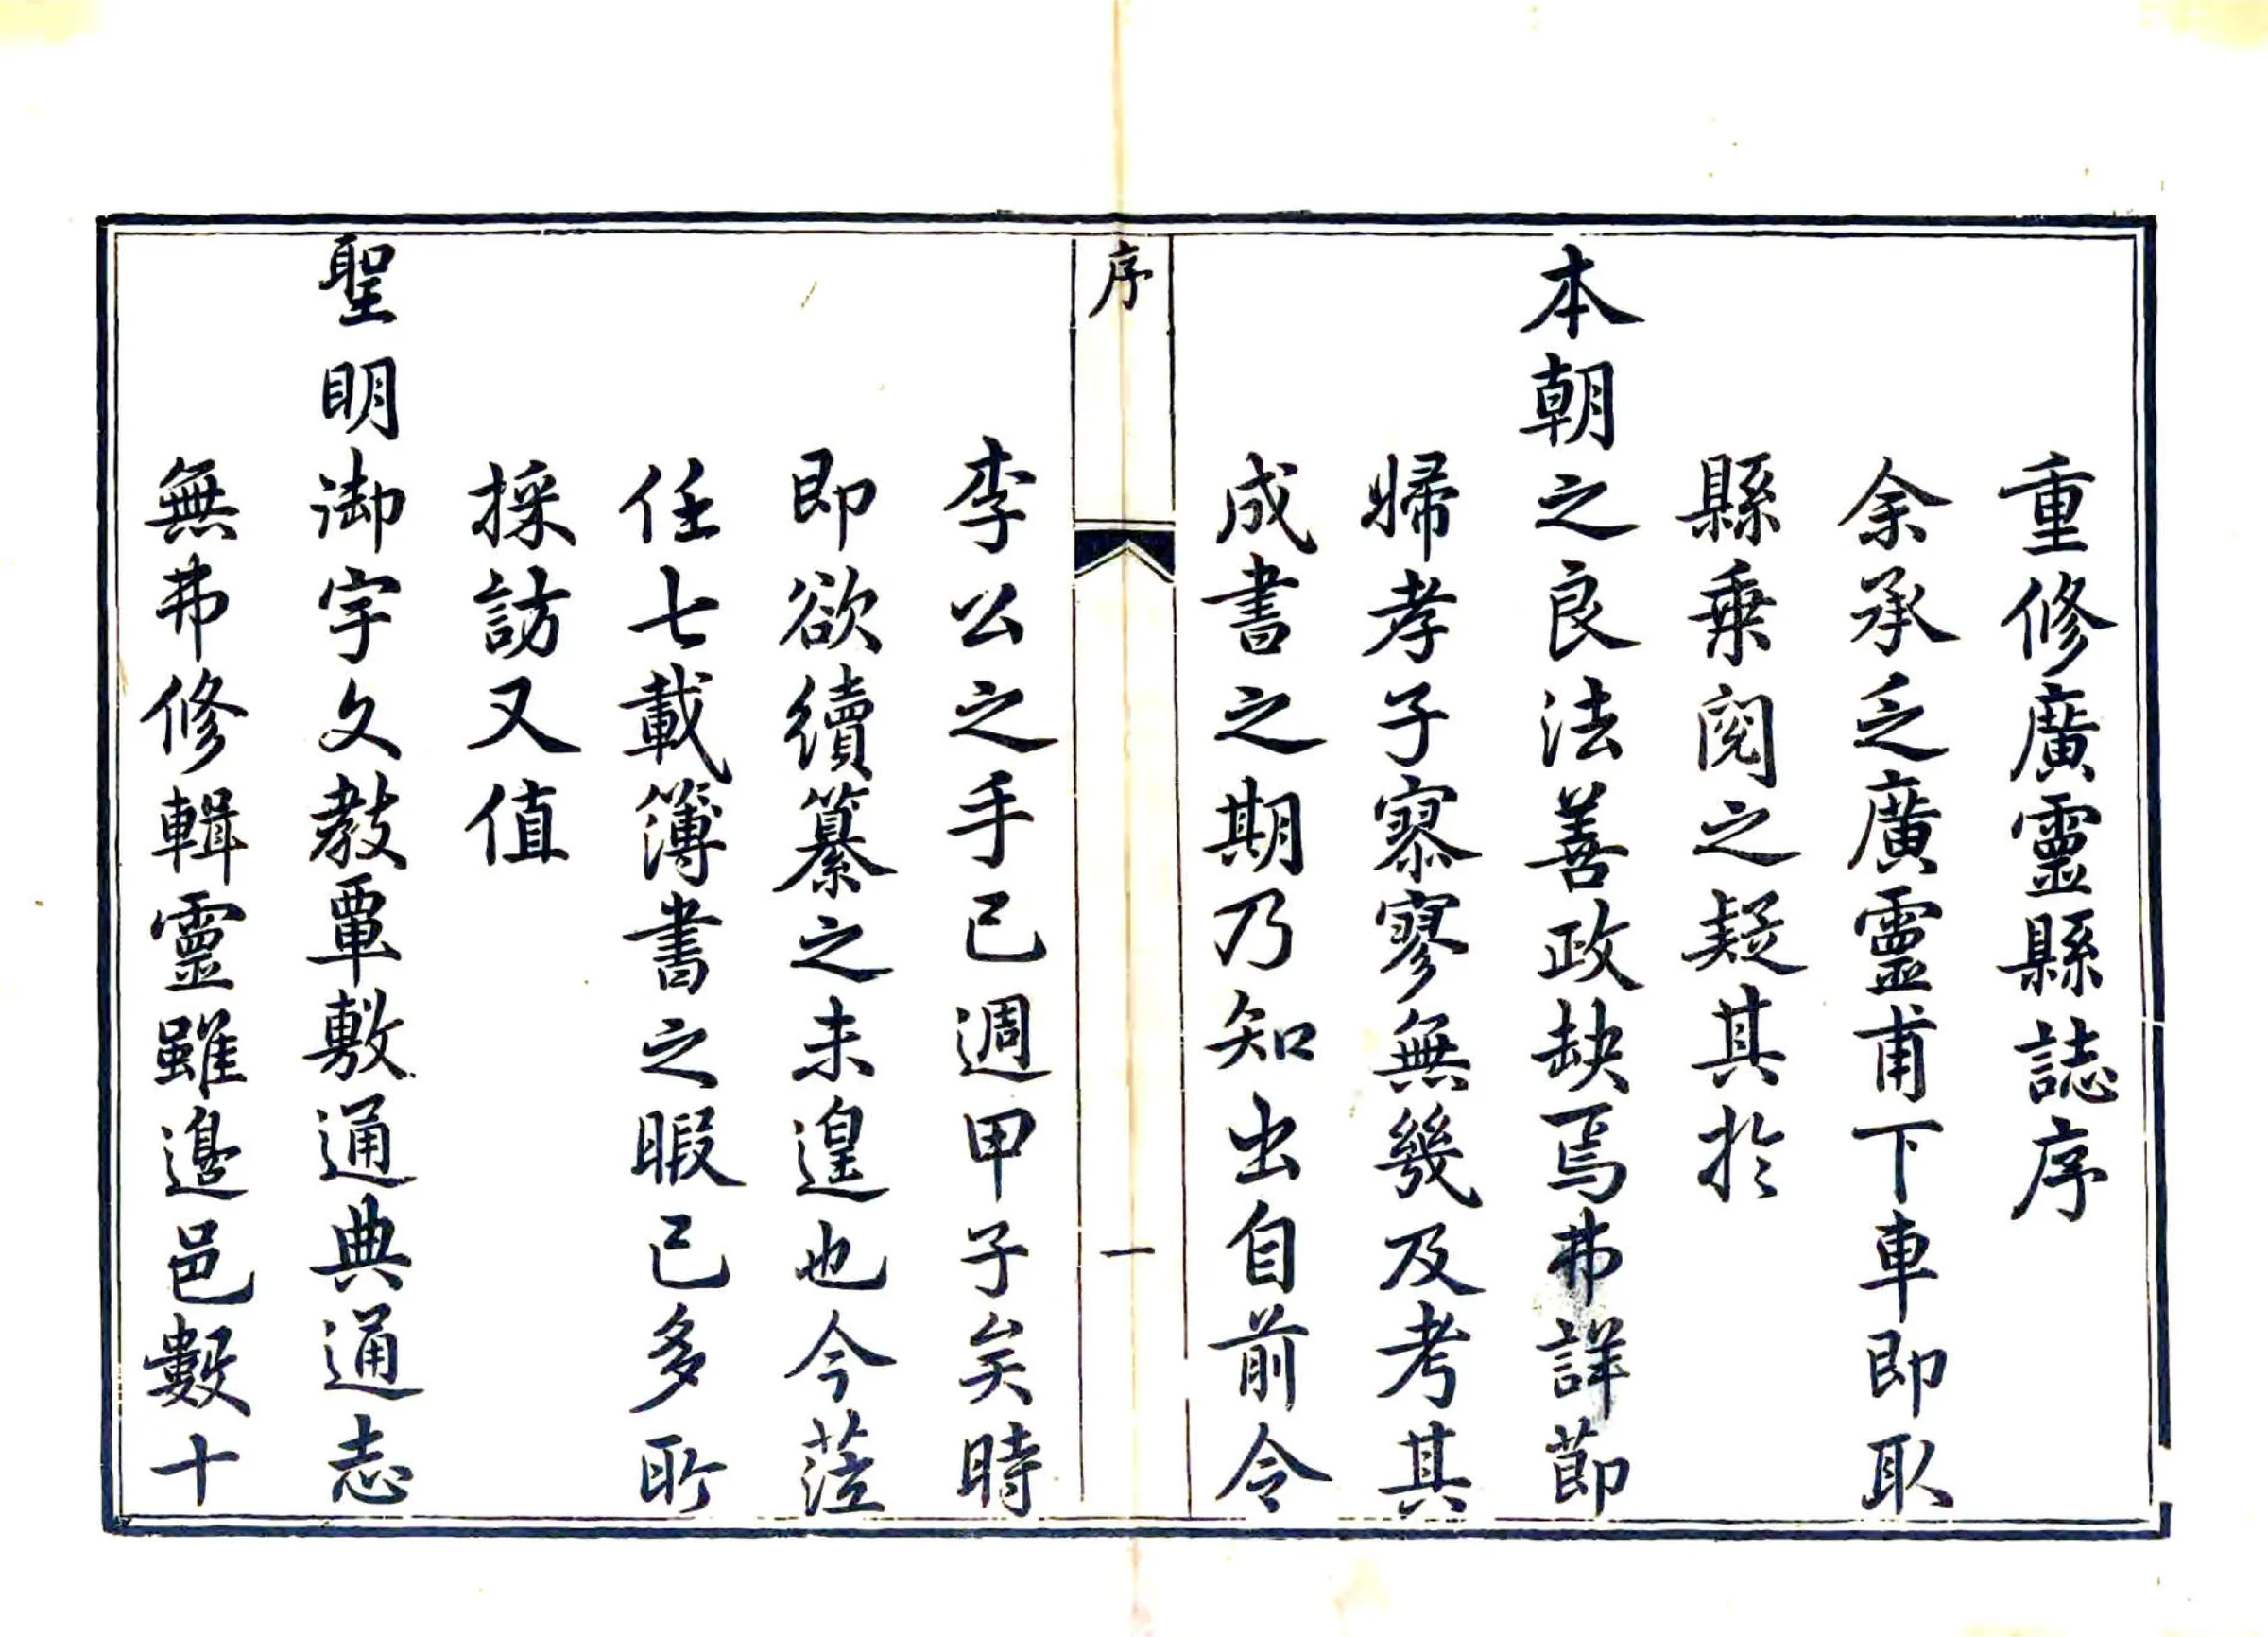 重修廣靈縣誌序
余承乏廣靈甫下車即取
縣乗閲之疑其於
本朝之良法善政缺焉弗詳節
婦孝子寥寥無幾及考其
成書之期乃知出自前令
序
一
李公之手已週甲子矣時
即欲續纂之未遑也今蒞
任七載簿書之暇已多所
採訪又值
聖明御宇文教覃敷通典通志
無弗修輯靈雖邊邑數十